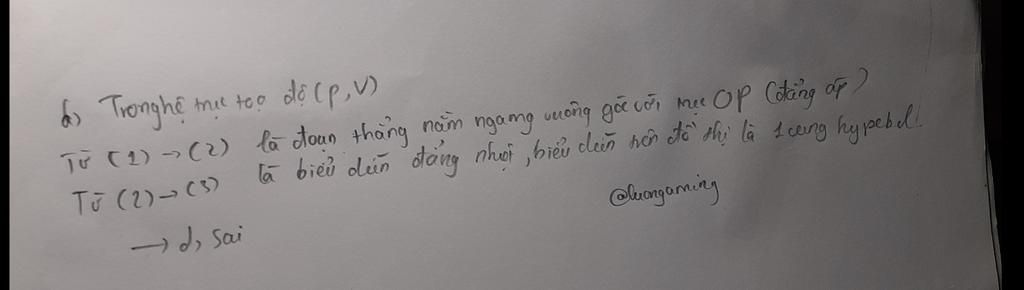 d) Trong hệ trục toạ độ (p,V)
Từ (1) → (2) là đoạn thẳng nằm ngang vuông góc với trục OP (đẳng áp)
Từ (2) → (3) là biểu diễn đẳng nhiệt, biểu diễn trên đồ thị là 1 cung hypebol.
@luongaming
→ d, sai